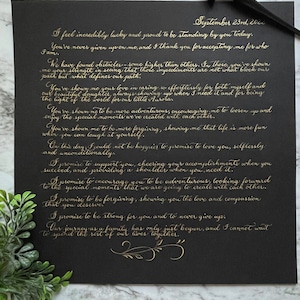 September 23rd, 202
I feel incredibly lucky and proud to be standing by you today.
You've never given up on me, and I thank you for accepting me for who
I am.
We have faced obstacles - some higher than others. In those you've shown
me your strength in seeing that those impediments are not what block our
path but what defines our path.
You've shown me your love in caring so effortlessly for both myself and
our beautiful daughter, always showing up when I need it and for being
the light of the world for our little
You've shown me to be more adventurous, encouraging me to loosen up and
enjoy the special moments we've created with each other.
You've shown me to be more forgiving, showing me that life is more fun
when you can laugh at yourself.
On this day, I could not be happier to promise to love you, selflessly
and unconditionally.
I promise to support you, cheering your accomplishments when you
succeed, and providing a shoulder when you need it.
I promise to encourage you to be adventurous, looking forward
to the special moments that we are going to create with each other.
I promise to be forgiving, showing you the love and compassion
that you deserve.
I promise to be strong for you and to never give up.
Our journey as a family has only just begun, and I cannot wait
to spend the rest of our lives together.